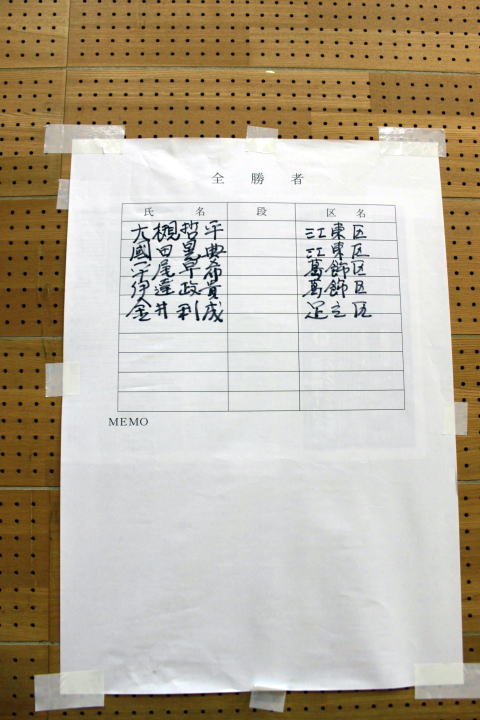 全勝者
氏名 段 区名
大槻哲平 江東区
國田 典 江東区
尾卓希 葛飾区
伊達政貴 葛飾区
金井利成 足立区
MEMO